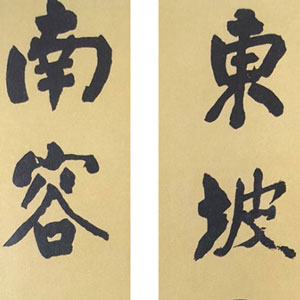 東坡
南容